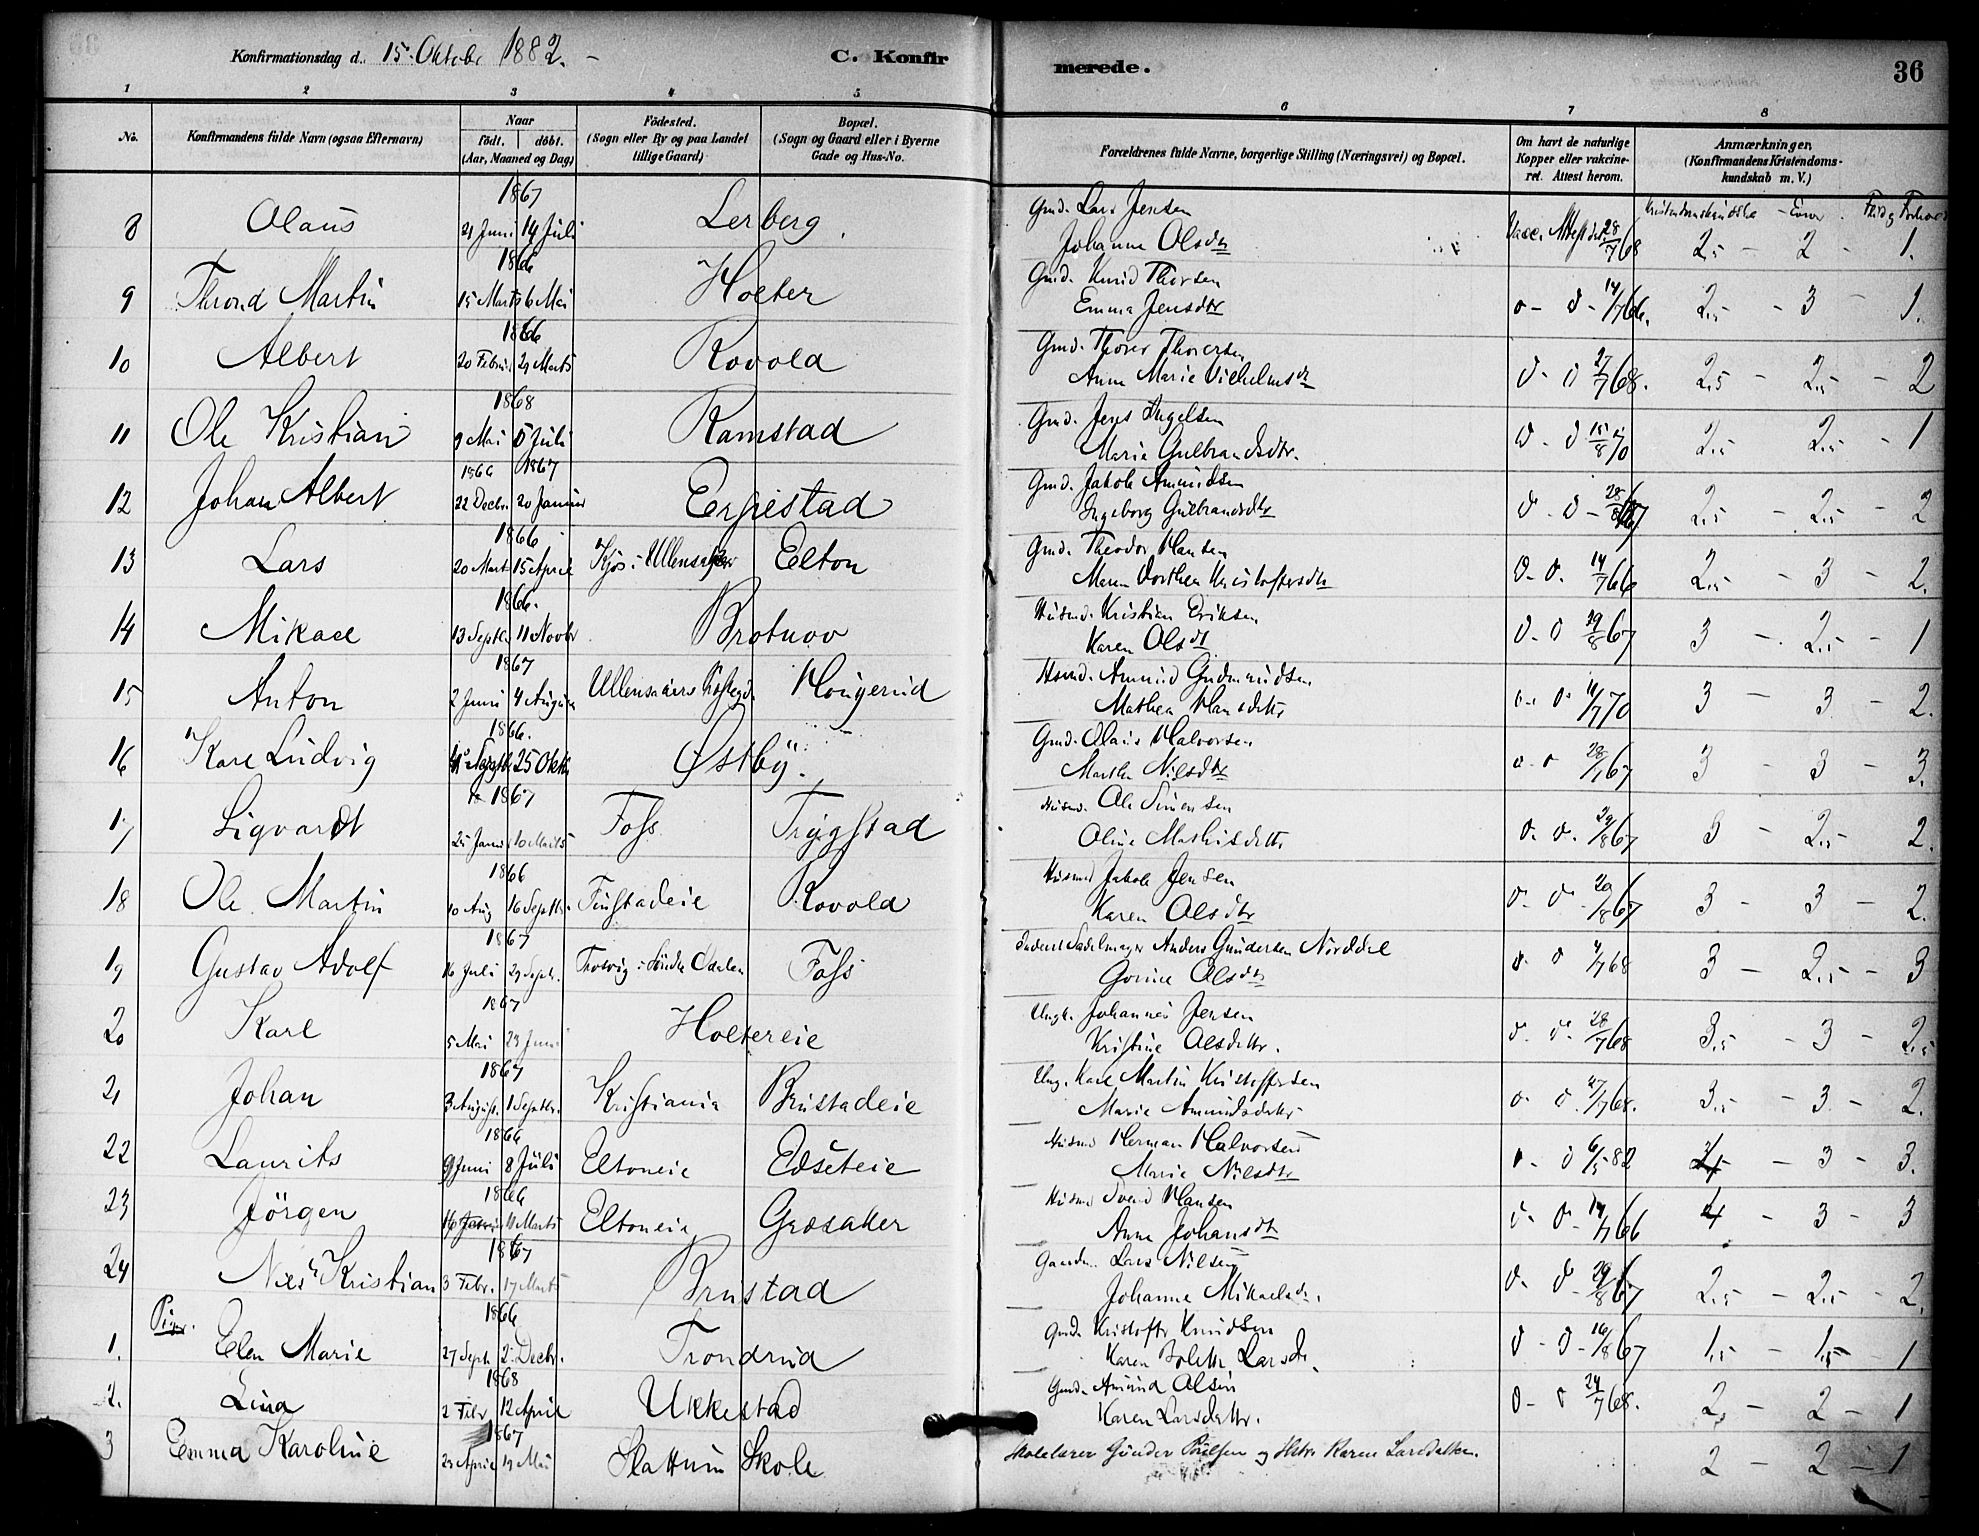 Konfirmationsdag d. 15. Oktobr 1882. -
C. Konfirmerede.
36
1 2 3 4 5 6 7 8
No.
Konfirmandens fulde Navn (ogsaa Efternavn)
Naar
Födt. döbt.
(Aar, Maaned og Dag)
Födested.
(Sogn eller By og paa Landet
tillige Gaard)
Bopæl.
(Sogn og Gaard eller i Byerne
Gade og Hus-No.
Forældrenes fulde Navne, borgerlige Stilling (Næringsvei) og Bopæl.
Om havt de naturlige
Kopper eller vakcine-
ret. Attest herom.
Anmærkninger.
(Konfirmandens Kristendoms-
kundskab m. V.)
1867
Gmd. Lars Jensen
8 Olaus 21 Juni 14 Juli Lerberg. Johanne Olsdtr Vacc. Attest 28/7 68 2,5 - 2 - 1.
1866
Gmd. Knud Thorsen
9 Thrond Martin 15 Marts 6 Mai Holter Emma Jensdtr 14/7 66. 2,5 - 3 - 1.
1866
Gmd. Thorer Thorersen
10 Albert 20 Februar 29 Marts Rovold Anne Marie Vilhelmsdt 27/7 68. 2,5 - 2,5 - 2
1868
Gmd. Jens Engelsen
11 Ole Kristian 9 Mai 5 Juli Ramstad Marie Gulbrandsdtr. 15/8 70 2,5 2,5 - 1
1866 1867
Gmd. Jakob Amundsen
12 Johan Albert 22 Decbr. 20 Januar Erpestad Ingeborg Gulbrandsdtr 28/8 67 2,5 - 2,5 - 2
1866
Gmd. Theodor Hansen
13 Lars 20 Mart 15 April Kjös i Ullensaker Elton Maren Dorthea Kristoffersdtr 14/7 66 2,5 - 3 - 2.
1866.
Husmd. Kristian Eriksen
14 Mikael 13 Septbr 11 Novbr Brotnov Karen Olsdt 29/8 67 3 - 2,5 - 1
1867
Husmd. Amund Gudmundsen
15 Anton 2 Juni 4 August Ullensakers Hougerud Mathea Hansdattr 11/7 70 3 - 3 - 2.
1866.
Gmd. Olaus Halvorsen
16 Karl Ludvig 25 Oktb Østby. Marthe Nilsdtr 28/7 67 3 - 3 - 3.
1867
Husmd. Ole Simensen
17 Sigvardt 25 Januar 10 Marts Foss Trygstad Oline Mathisdattr 29/8 67 3 - 2,5 - 2.
1866
Husmd Jakob Jensen
18 Ole Martin 10 Aug 16 Septbr. Finstadeie Rovold Karen Olsdtr 29/8 67 3 - 3 - 2.
1867
Inderst Sadelmager Anders Gundersen Norddal
19 Gustav Adolf 16 Juli 29 Septbr. i Söndre Odalen Foss Gorine Olsdtr 4/7 68 3 - 2,5 - 3
1867
Ungk. Johannes Jensen
20 Karl 5 Mai 23 Juni Holtereie Kristine Olsdattr. 28/7 68 3,5 - 3 - 2,5
1867
Ung. Karl Martin Kristoffersen
21 Johan 3 August. 1 Septbr. Kristiania Brustadeie Marie Amundsdattr 27/7 68. 3,5 - 3 - 2.
1866
Husmd Herman Halvorsen
22 Laurits 9 Juni 8 Juli Eltoneie Edseteie Marie Nilsdtr 6/5 82 4 - 3 - 3.
1866
Husmd Svend Hansen
23 Jörgen 16 11 Marts Eltoneie Græsaker Anne Johansdt 14/7 66 4 - 3 - 3
1867
Gaardm. Lars Nilsen
24 Nils Kristian 3 Febr. 17 Marts Brustad Johanne Mikaelsdt. 29/8 67 2,5 - 2,5 - 2.
Piger.
1866
Gmd. Kristoffer Knudsen
1. Elen Marie 27 Septb 2 Decbr. Trondrud Karen Larsdt. 16/8 67 1,5 - 1,5 - 1
1868
Gmd. Amund Olsen
2. Lina 2 Febr 12 April Ukkestad Karen Larsdattr. 24/7 68. 2 - 2 - 1
1867
3 Emma Karoline 23 April 19 Mai Slattum Skole Skolelærer Gunder Poulsen og Hstr. Karen Larsdatter. 2 - 2 - 1